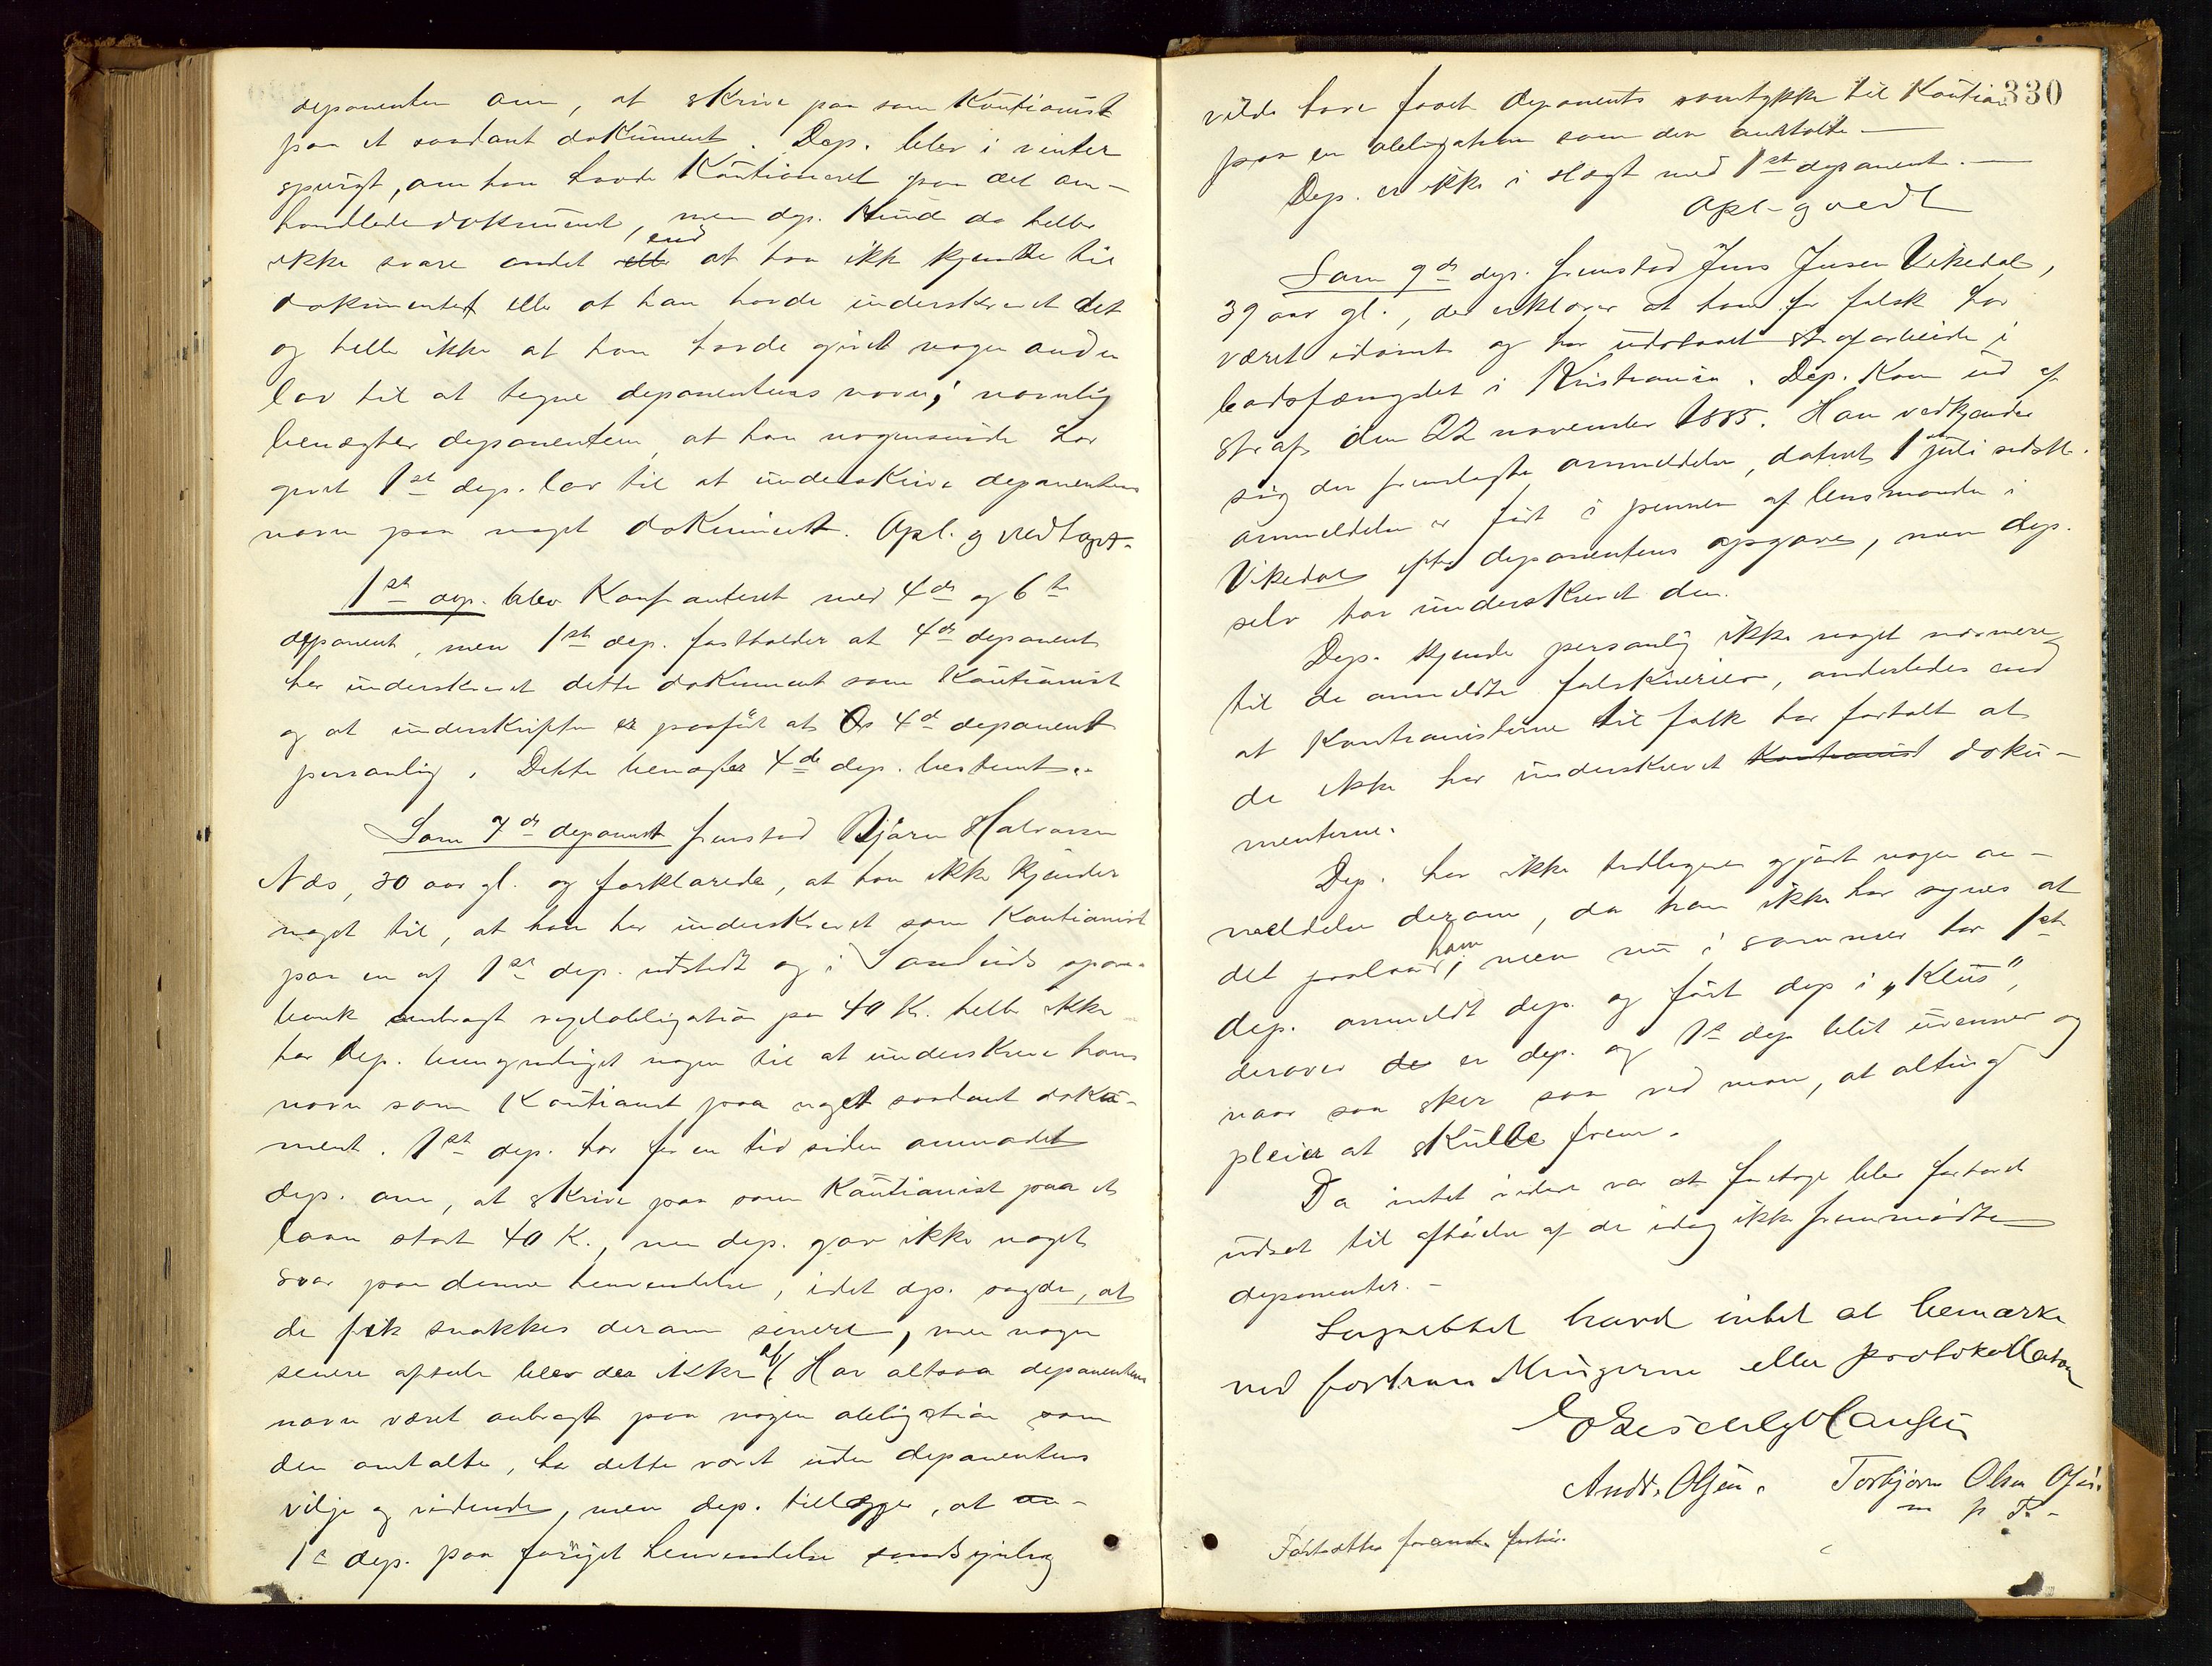 deponenten om, at skrive paa som Kautionist
paa et saadant dokument. Dep. blev i vinter
spurgt, om han havde Kautioneret paa det om-
handlede dokument, men dep. Kund da heller
ikke svare andet end at han ikke kjendte til
dokumentet eller at han havde underskrevet det
og heller ikke at han havde givet nogen anden
lov til at tegne deponentens navn; navnlig
benægter deponenten, at han nogensinde har
givet 1st dep. lov til at underskrive deponentens
navn paa noget dokument. Opl. g vedtaget.
1st dep. blev Konfronteret med 4de og 6te
deponent, men 1ste dep. fastholder at 4de deponent
har underskrevet dette dokument som Kautionist
og at underskriften er paaført af 4de deponent
personlig. Dette benægter 4de dep. bestemt.
Som 7de deponent fremstod Bjørn Halvorsen
Næs, 30 aar gl. og forklarede, at han ikke kjender
noget til, at han har underskrevet som Kautionist
paa en af 1ste dep. udstedt og i Sandeids spare-
bank anbragt vexelobligation paa 40 K. heller ikke
har dep. bemyndiget nogen til at underskrive hans
navn som Kautionist paa noget saadant doku-
ment. 1ste dep. har for en tid siden anmodet
dep. om, at skrive paa som Kautionist paa et
laan stort 40 K., men dep. gav ikke noget
svar paa denne henvendelse, idet dep. sagde, at
de fik snakkes derom senere, men nogen
senere aftale blev der ikke af. Har altsaa deponentens
navn været anbragt paa nogen obligation som
den omtalte, har dette været uden deponentens
vilje og vidende, men dep. tillægger, at
1ste dep. paa forriget henvendelse sandsynlig
330
vilde have faaet deponents samtykke til Kaution
paa en obligation som den omtalte.
Dep. er ikke i slægt med 1ste deponent.
Opl. g vedt
Som 9de dep. fremstod Jens Jensen Vikedal,
39 aar gl., der erklærer at han for falsk har
været idømt og har udstaaet strafarbeide i
bodsfængslet i Kristiania. Dep. Kom ud af
straf den 22 november 1885. Han vedkjender
sig den fremlagte anmeldelse, dateret 1 juli sidstl.
anmeldelsen er ført i pennen af lensmanden i
Vikedal efter deponentens opgave, men dep.
selv har underskrevet den.
Dep. kjender personlig ikke noget nærmere
til de anmeldte falsknerier, anderledes end
at Kautionisterne til folk har fortalt at
de ikke har underskrevet Kautionist doku-
menterne.
Dep. har ikke tidligere gjort nogen an-
meldelse derom, da han ikke har synes at
det paalaa ham; men nu i sommer har 1ste
dep. anmeldt dep. og ført dep i „Klus",
derover er dep. og 1ste dep blit uvenner og
naar saa sker saa ved man, at alting
pleier at skulle frem.
Da intet videre var at foretage blev forhøret
udsat til afhørelse af de idag ikke fremmødte
deponenter.
Lagrettet havde intet at bemærke
ved fortrun Mingerne eller protokollation
Andr. Olsen. Torbjørn Olsen
m p P.
Fortsættes foranste forhør.